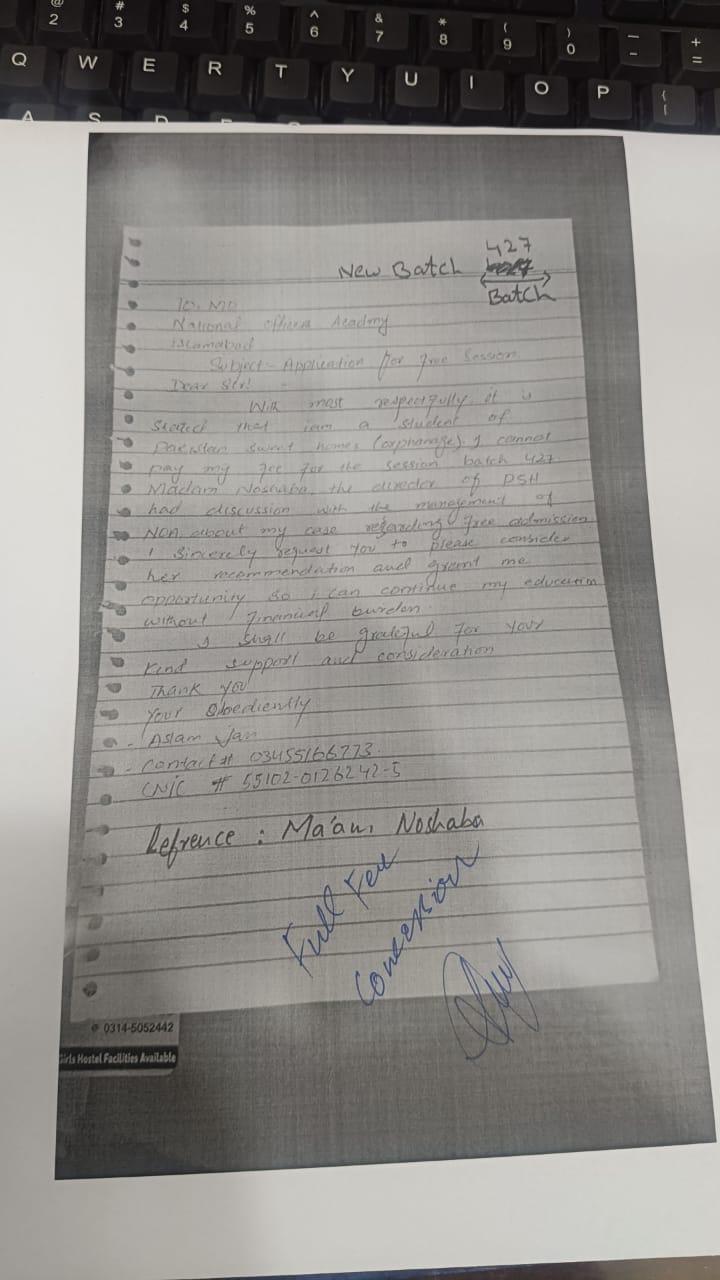 @ # $ % ^ & * ( ) — +
2 3 4 5 6 7 8 9 0 - =
Q W E R T Y U I O P { [
A S D
427
New Batch
Batch
To, MD
National Officers Academy
Islamabad
Subject- Application for free Session
Dear Sir!
With most respectfully it is
stated that iam a student of
Pakistan sweet homes (orphanage). I cannot
pay my fee for the session batch 427
Madam Noshaba, the director of PSH
had discussion with the management of
NOA about my case regarding free admission
I sincerely request you to please consider
her recommendation and grant me
opportunity so i can continue my education
without financial burden.
I shall be grateful for your
kind support and consideration
Thank you
Your Obediently
- Aslam Jan
- Contact# 03455166773.
CNIC # 55102-0126242-5
Refrence : Ma'am Noshaba
Full Fee
Concession
0314-5052442
Girls Hostel Facilities Available